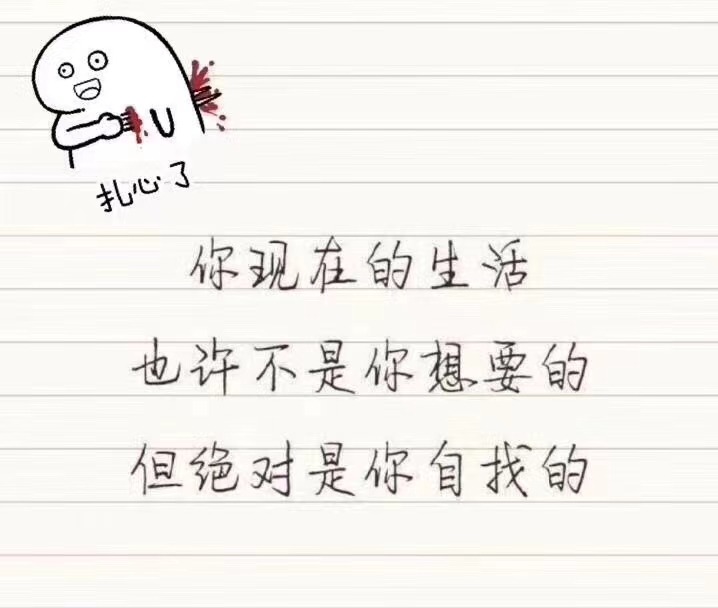 扎心了
你现在的生活
也许不是你想要的
但绝对是你自找的